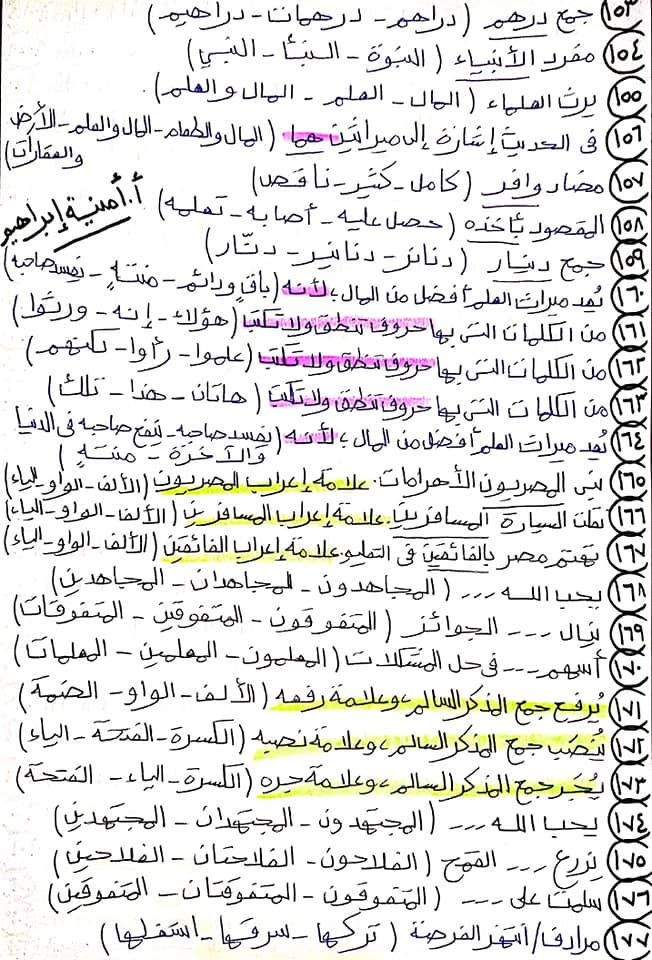 ١٥٣ جمع درهم (دراهم - درهمات - دراهيم)
١٥٤ مفرد الأنبياء (النبوة - النبأ - النبي)
١٥٥ يرث العلماء (المال - العلم - المال والعلم)
١٥٦ فى الحديث إشارة إلى ميراثين هما (المال والطعام - المال والعلم - الأرض والعقارات)
١٥٧ مضاد وافر (كامل - كثير - ناقص)
أ. أمنية إبراهيم
١٥٨ المقصود بأخذه (حصل عليه - أصابه - تعلمه)
١٥٩ جمع دينار (دنائر - دنانير - دنّار)
١٦٠ يُعد ميراث العلم أفضل من المال، لأنه (باقٍ ودائم - منتهٍ - يفسد صاحبه)
١٦١ من الكلمات التى بها حروف تنطق ولا تكتب (هؤلاء - إنه - ورثوا)
١٦٢ من الكلمات التى بها حروف تنطق ولا تكتب (علموا - رأوا - لكنهم)
١٦٣ من الكلمات التى بها حروف تنطق ولا تكتب (هاتان - هذا - تلك)
١٦٤ يُعد ميراث العلم أفضل من المال، لأنه (يفسد صاحبه - ينفع صاحبه فى الدنيا والآخرة - منتهٍ)
١٦٥ بنى المصريون الأهرامات. علامة إعراب المصريون (الألف - الواو - الياء)
١٦٦ نقلت السيارة المسافرين. علامة إعراب المسافرين (الألف - الواو - الياء)
١٦٧ تهتم مصر بالفائقين فى التعليم. علامة إعراب الفائقين (الألف - الواو - الياء)
١٦٨ يحب الله ... (المجاهدون - المجاهدان - المجاهدين)
١٦٩ ينال ... الجوائز (المتفوقون - المتفوقين - المتفوقات)
١٧٠ أسهم ... فى حل المشكلات (المعلمون - المعلمين - المعلمات)
١٧١ يُرفع جمع المذكر السالم، وعلامة رفعه (الألف - الواو - الضمة)
١٧٢ يُنصب جمع المذكر السالم، وعلامة نصبه (الكسرة - الفتحة - الياء)
١٧٣ يُجر جمع المذكر السالم، وعلامة جره (الكسرة - الياء - الفتحة)
١٧٤ يحب الله ... (المجتهدون - المجتهدان - المجتهدين)
١٧٥ يزرع ... القمح (الفلاحون - الفلاحتان - الفلاحين)
١٧٦ سلمت على ... (المتفوقون - المتفوقتان - المتفوقين)
١٧٧ مرادف/ انتهز الفرصة (تركها - سرقها - استغلها)